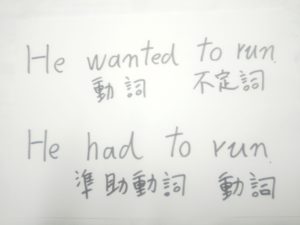 He wanted to run.
動詞 不定詞
He had to run
準助動詞 動詞